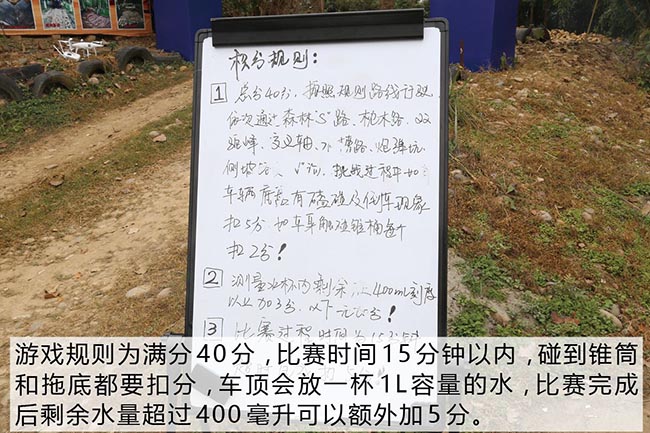 积分规则:
1 总分40分,按照规则路线行驶
依次通过森林"S"路、枕木路、双
驼峰、交叉轴、水槽路、炮弹坑
侧坡 挑战过程中如
车辆底盘有磕碰及倒车现象
扣5分 如车身触碰锥桶每个
扣2分!
2 测量水杯内剩余 400mL刻度
以上加3分,以下 !
3 比赛过程时间为15分钟
游戏规则为满分40分,比赛时间15分钟以内,碰到锥筒
和拖底都要扣分,车顶会放一杯1L容量的水,比赛完成
后剩余水量超过400毫升可以额外加5分。